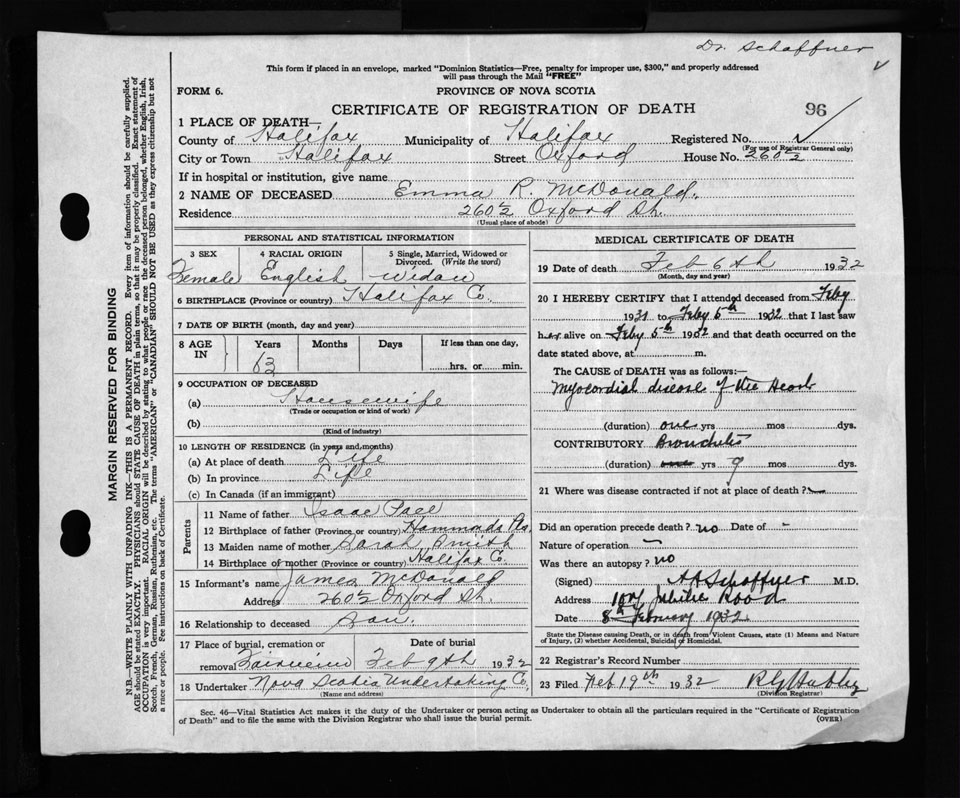 Dr. Schaffner
This form if placed in an envelope, marked "Dominion Statistics—Free, penalty for improper use, $300," and properly addressed
will pass through the Mail "FREE"
FORM 6.
PROVINCE OF NOVA SCOTIA
CERTIFICATE OF REGISTRATION OF DEATH
96
1 PLACE OF DEATH—
County of Halifax Municipality of Halifax Registered No.
(For use of Registrar General only)
City or Town Halifax Street Oxford House No. 260½
If in hospital or institution, give name
2 NAME OF DECEASED Emma R. McDonald.
Residence 260½ Oxford St.
(Usual place of abode)
PERSONAL AND STATISTICAL INFORMATION
3 SEX 4 RACIAL ORIGIN 5 Single, Married, Widowed or
Divorced. (Write the word)
Female English Widow
6 BIRTHPLACE (Province or country) Halifax Co.
7 DATE OF BIRTH (month, day and year)
8 AGE IN Years Months Days If less than one day,
63 hrs. or min.
9 OCCUPATION OF DECEASED
(a) Housewife
(Trade or occupation or kind of work)
(b)
(Kind of industry)
10 LENGTH OF RESIDENCE (in years and months)
(a) At place of death Life
(b) In province Life
(c) In Canada (if an immigrant)
Parents
11 Name of father Isaac Pace
12 Birthplace of father (Province or country) Hammonds Pls.
13 Maiden name of mother Sarah Smith
14 Birthplace of mother (Province or country) Halifax Co.
15 Informant's name James McDonald
Address 260½ Oxford St.
16 Relationship to deceased Son.
17 Place of burial, cremation or Date of burial
removal Fairview Feb 9th 1932
18 Undertaker Nova Scotia Undertaking Co.
(Name and address)
MEDICAL CERTIFICATE OF DEATH
19 Date of death Feb 6th 1932
(Month, day and year)
20 I HEREBY CERTIFY that I attended deceased from Feby
1931 to Feby 5th 1932 that I last saw
her alive on Feby 5th 1932 and that death occurred on the
date stated above, at m.
The CAUSE of DEATH was as follows:—
Myocardial disease of the Heart
(duration) one yrs mos dys.
CONTRIBUTORY Bronchitis
(duration) yrs 9 mos dys.
21 Where was disease contracted if not at place of death?
Did an operation precede death? no Date of -
Nature of operation —
Was there an autopsy? no
(Signed) Schaffner M.D.
Address Jubilee Road
Date 8th February 1932
State the Disease causing Death, or in death from Violent Causes, state (1) Means and Nature
of Injury, (2) whether Accidental, Suicidal or Homicidal.
22 Registrar's Record Number
23 Filed Feb 19th 1932
(Division Registrar)
Sec. 46—Vital Statistics Act makes it the duty of the Undertaker or person acting as Undertaker to obtain all the particulars required in the "Certificate of Registration
of Death" and to file the same with the Division Registrar who shall issue the burial permit.
(OVER)
MARGIN RESERVED FOR BINDING
N.B.—WRITE PLAINLY WITH UNFADING INK—THIS IS A PERMANENT RECORD. Every item of information should be carefully supplied.
AGE should be stated EXACTLY. PHYSICIANS should STATE CAUSE OF DEATH in plain terms, so that it may be properly classified. Exact statement of
OCCUPATION is very important. RACIAL ORIGIN will be described by stating to what people or race the deceased person belonged, whether English, Irish,
Scotch, French, German, Russian, Ruthenian, etc. The terms "AMERICAN" or "CANADIAN" SHOULD NOT BE USED as they express citizenship but not
a race or people. See instructions on back of Certificate.